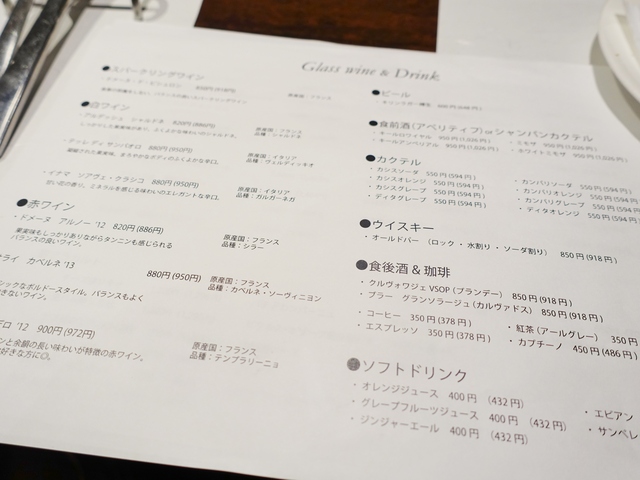 Glass wine & Drink
●スパークリングワイン
●白ワイン
・アルデッシュ シャルドネ 820円(886円)
原産国：フランス
品種：シャルドネ
880円(950円)
原産国：イタリア
品種：ヴェルディッキオ
・イナマ ソアヴェ・クラシコ 880円(950円)
甘い花の香り、ミネラルを感じる味わいのエレガントな辛口。
原産国：イタリア
品種：ガルガーネガ
●赤ワイン
・ドメーヌ アルノー '12 820円(886円)
果実味もしっかりありながらタンニンも感じられる
バランスの良いワイン。
原産国：フランス
品種：シラー
ライ カベルネ '13
880円(950円)
シックなボルドースタイル。バランスもよく
きないワイン。
原産国：フランス
品種：カベルネ・ソーヴィニヨン
ドロ '12 900円(972円)
ンと余韻の長い味わいが特徴の赤ワイン。
好きな方に◎。
原産国：フランス
品種：テンプラリーニョ
●ビール
●食前酒(アペリティブ)orシャンパンカクテル
・キールロワイヤル 950円(1,026円)
・キールアンペリアル 950円(1,026円)
・ミモザ 950円(1,026円)
・ホワイトミモザ 950円(1,026円)
●カクテル
・カシスソーダ 550円(594円)
・カシスオレンジ 550円(594円)
・カシスグレープ 550円(594円)
・ディタグレープ 550円(594円)
・カンパリソーダ 550円(594円)
・カンパリオレンジ 550円(594
・カンパリグレープ 550円(594
・ディタオレンジ 550円(594
●ウイスキー
・オールドパー （ロック・水割り・ソーダ割り） 850円(918円)
●食後酒＆珈琲
・クルヴォワジェVSOP(ブランデー) 850円(918円)
・ブラー グランソラージュ(カルヴァドス) 850円(918円)
・コーヒー 350円(378円)
・エスプレッソ 350円(378円)
・紅茶(アールグレー) 350円
・カプチーノ 450円(486円)
●ソフトドリンク
・オレンジジュース 400円 （432円）
・グレープフルーツジュース 400円 （432円）
・ジンジャーエール 400円 （432円）
・エビアン
・サンペレ